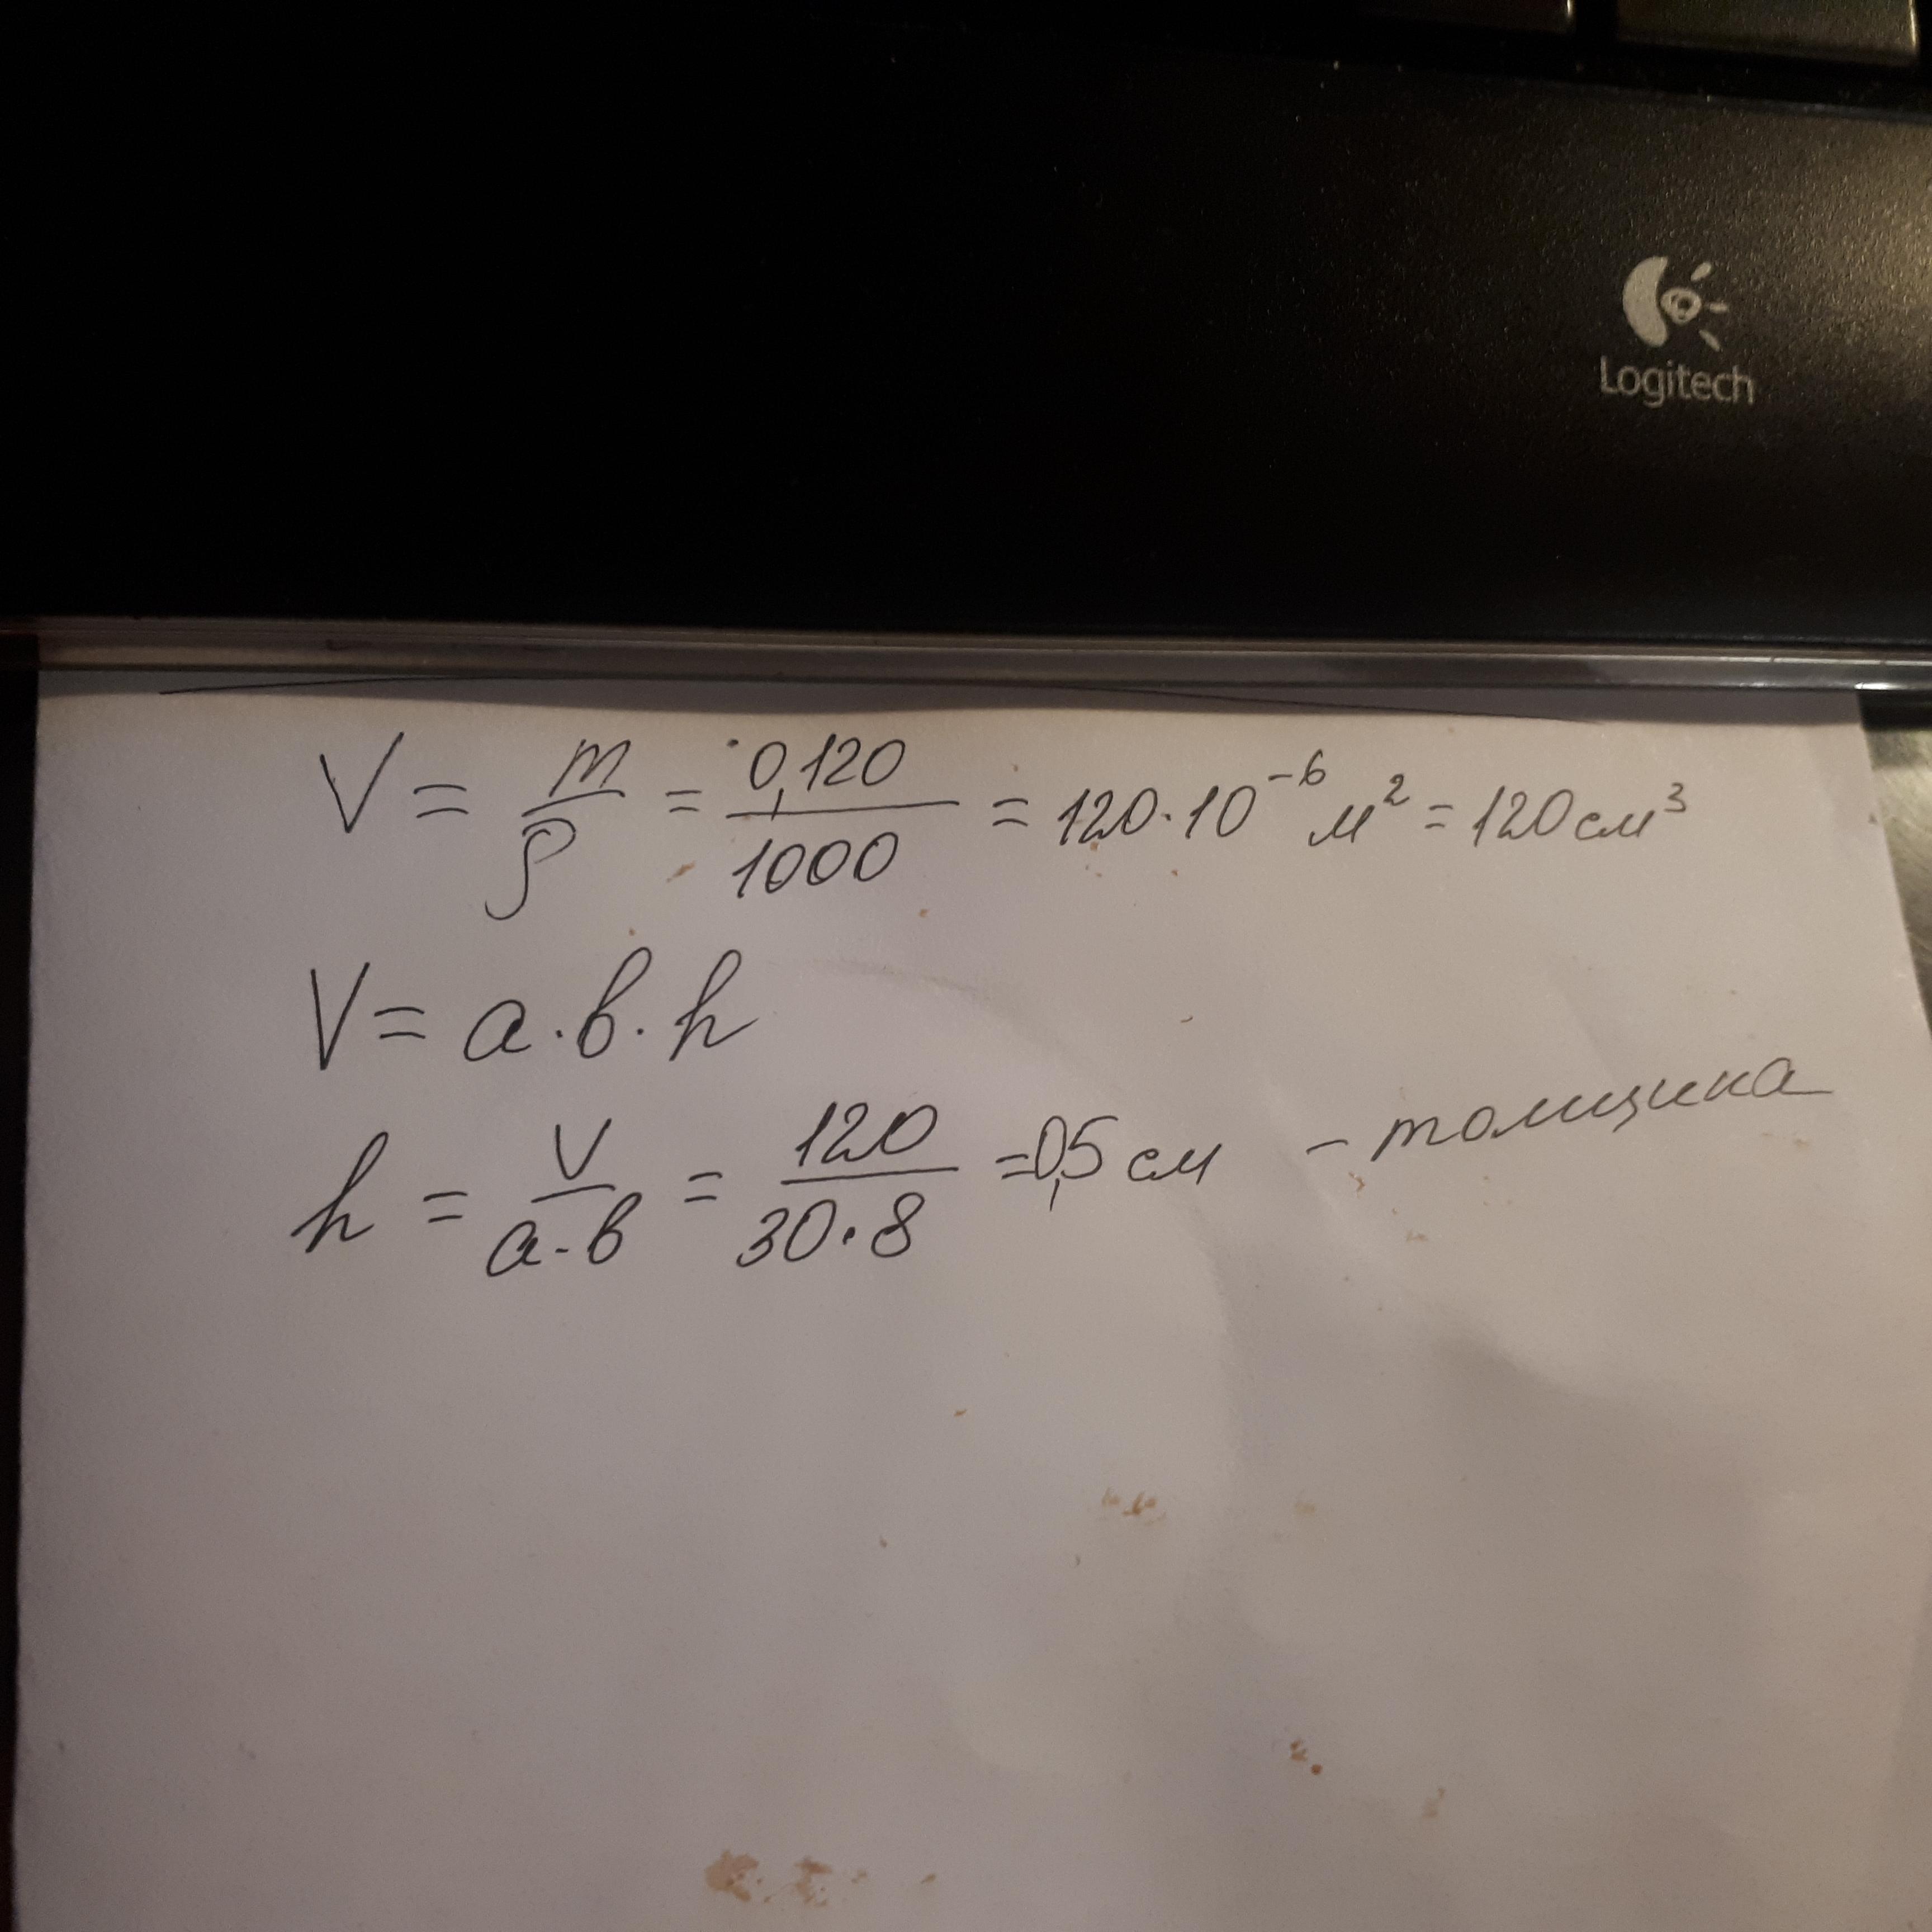 Logitech
V = m/ρ = 0,120/1000 = 120·10⁻⁶ м² = 120 см³
V = a·b·h
h = V/a·b = 120/30·8 = 0,5 см – толщина